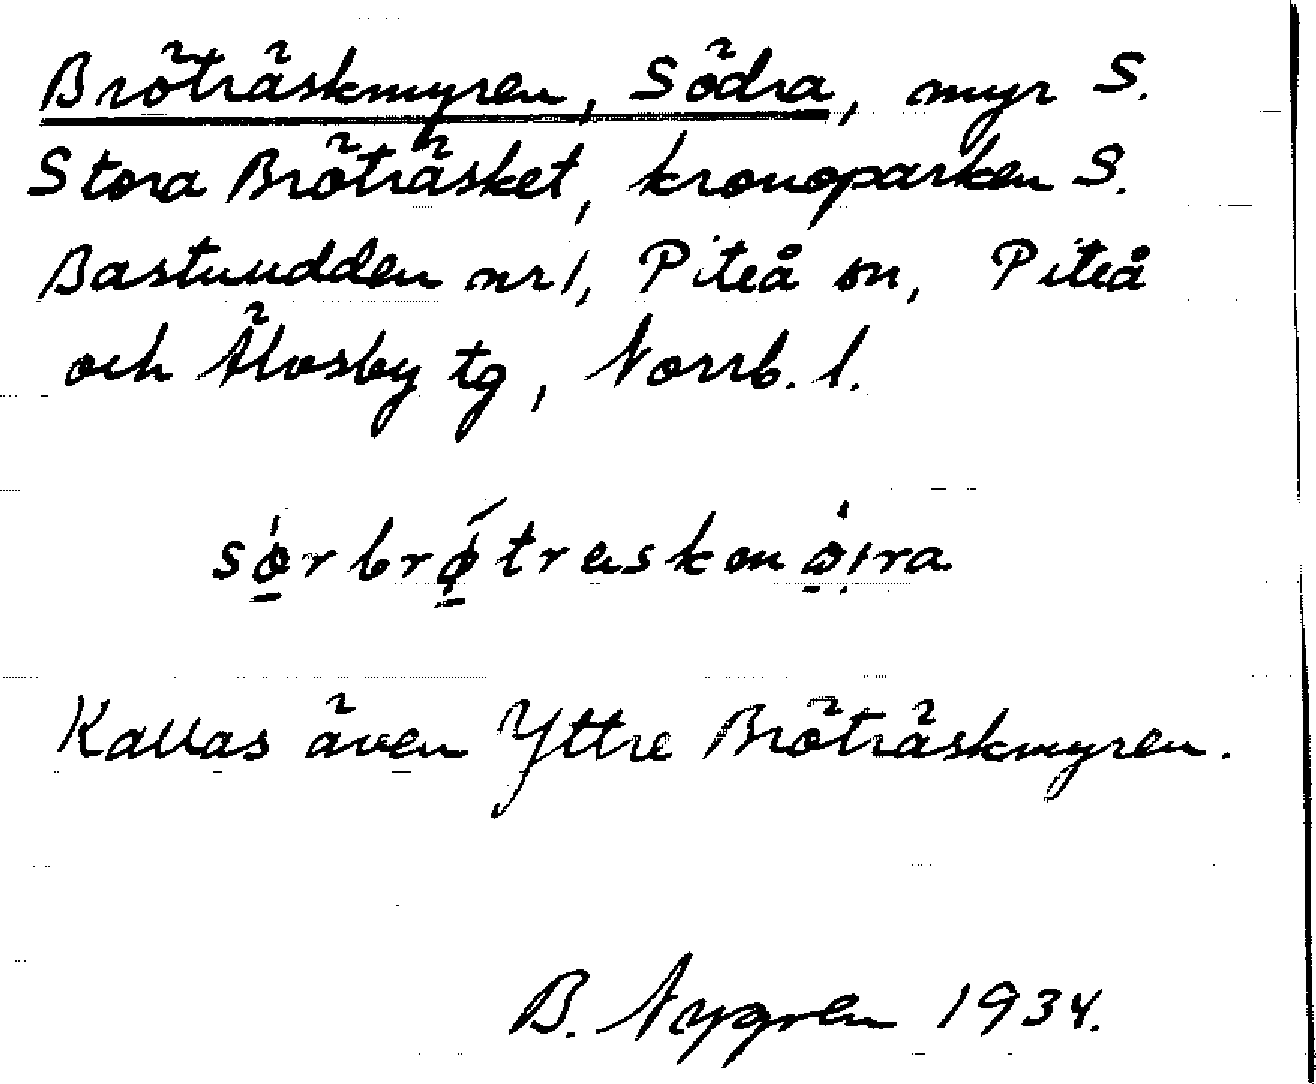 Bröträskmyren, Södra, myr S.
Stora Bröträsket, kronoparken S.
Bastuudden nr 1, Piteå sn, Piteå
och Älvsby tg, Norrb. l.
sø̱̀rbrǿ̱træskmø̱̀ıra
Kallas även Yttre Bröträskmyren.
B. Nygren 1934.